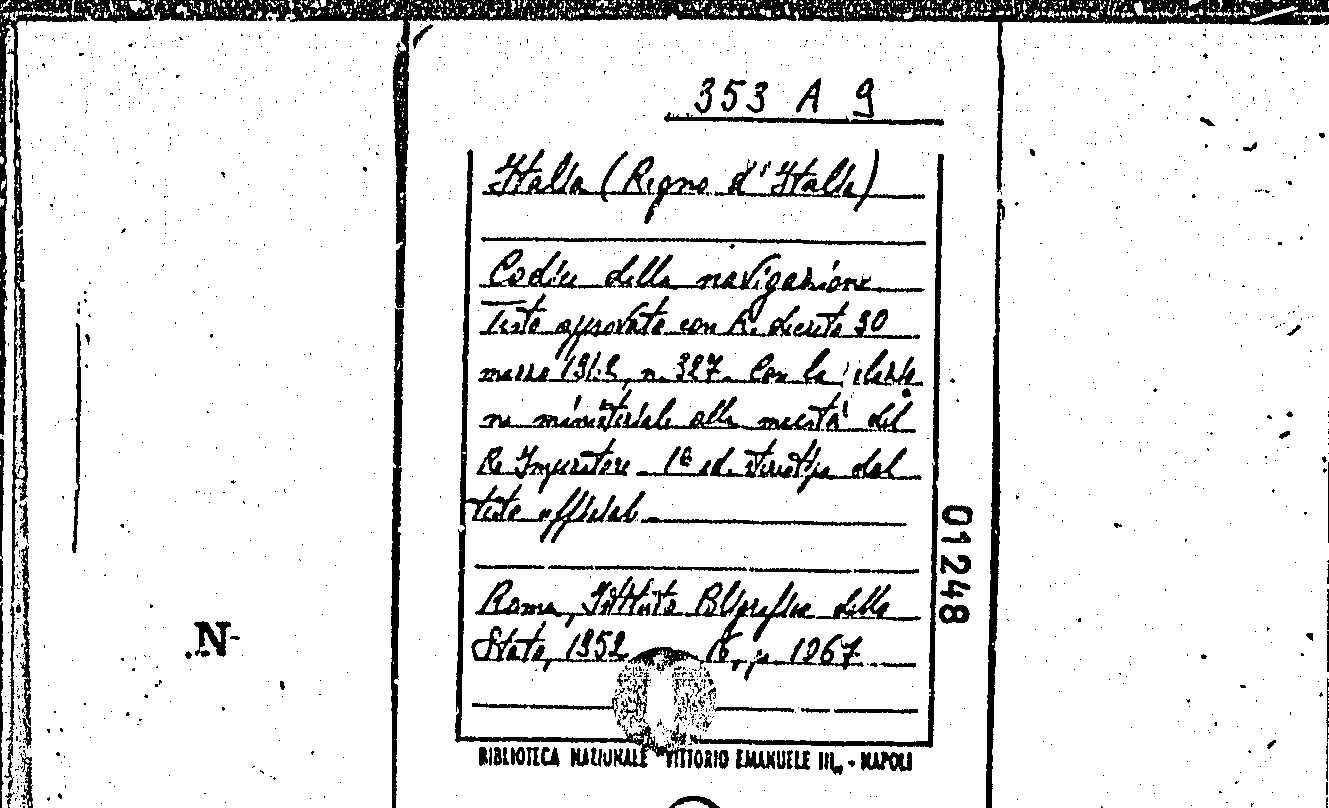 353 A 9
Italia (Regno d'Italia)
Codice della navigazione
Testo approvato con R. decreto 30
marzo 1942, n. 327. Con la relazio
ne ministeriale alla maestà del
Re Imperatore _ 1ª ed. stereotipa dal
testo ufficiale _
Roma, Istituto Poligrafico dello
Stato, 1952 16, p. 1067
01248
.N-
BIBLIOTECA NAZIONALE "VITTORIO EMANUELE III„ - NAPOLI